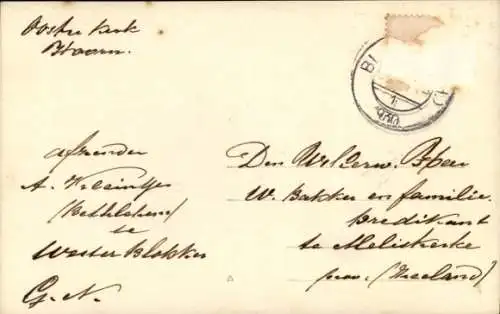 Oosterkerk
Hoorn.
BL
1
1930
afzender
A. Kleintjes
(Bethlehem)
te
Westerblokker
G. N.
Den Weleerw. Heer
W. Bakker en familie.
predikant
te Meliskerke
prov. (Zeeland)